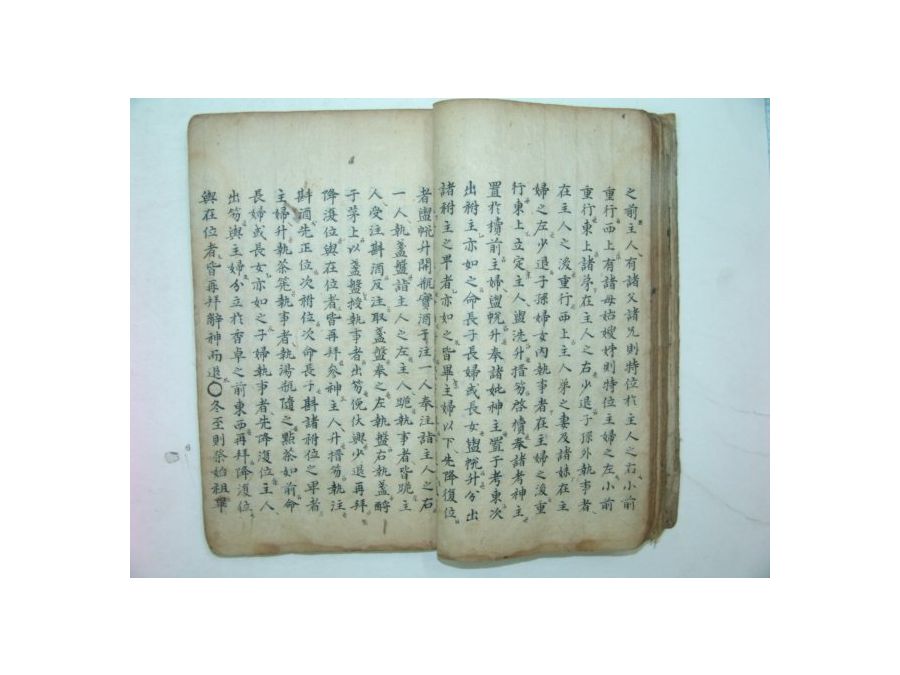 之前主人有諸父諸兄則特位於主人之右小前
重行西上有諸母姑嫂姉則特位主婦之左小前
重行東上諸弟在主人之右少退子孫外執事者
在主人之後重行西上主人弟之妻及諸妹在主
婦之左少退子孫婦女內執事者在主婦之後重
行東上立定主人盥洗升搢笏啓櫝奉諸考神主
置於櫝前主婦盥帨升奉諸妣神主置于考東次
出祔主亦如之命長子長婦或長女盥帨升分出
諸祔主之卑者亦如之皆畢主婦以下先降復位
者盥帨升開瓶實酒于注一人奉注詣主人之右
一人執盞盤詣主人之左主人跪執事者皆跪主
人受注斟酒反注取盞盤奉之左執盤右執盞酹
于茅上以盞盤授執事者出笏俛伏興少退再拜
降復位與在位者皆再拜參神主人升搢笏執注
斟酒先正位次祔位次命長子斟諸祔位之卑者
主婦升執茶筅執事者執湯瓶隨之點茶如前命
長婦或長女亦如之子婦執事者先降復位主人
出笏與主婦分立於香卓之前東西再拜降復位
與在位者皆再拜辭神而退〇冬至則祭始祖畢